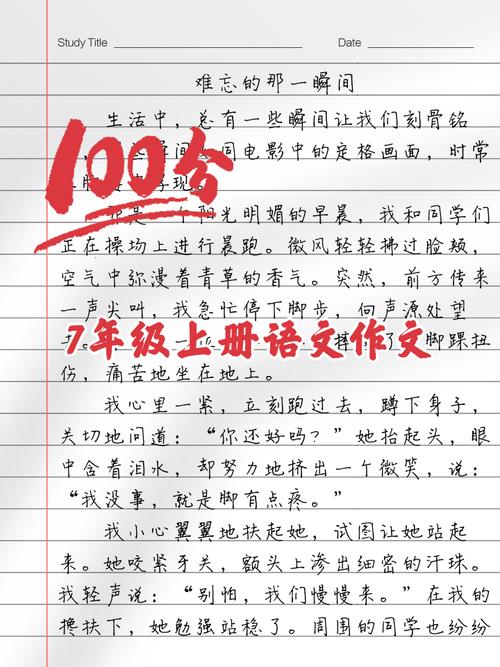 Study Title
Date
难忘的那一瞬间
生活中，总有一些瞬间让我们刻骨铭
同电影中的定格画面，时常
现。
100分
个阳光明媚的早晨，我和同学们
正在操场上进行晨跑。微风轻轻拂过脸颊，
空气中弥漫着青草的香气。突然，前方传来
一声尖叫，我急忙停下脚步，向声源处望
7年级上册语文作文
摔 了 脚踝扭
伤，痛苦地坐在地上。
我心里一紧，立刻跑过去，蹲下身子，
关切地问道：“你还好吗？”她抬起头，眼
中含着泪水，却努力地挤出一个微笑，说：
“我没事，就是脚有点疼。”
我小心翼翼地扶起她，试图让她站起
来。她咬紧牙关，额头上渗出细密的汗珠。
我轻声说：“别怕，我们慢慢来。”在我的
搀扶下，她勉强站稳了。周围的同学也纷纷